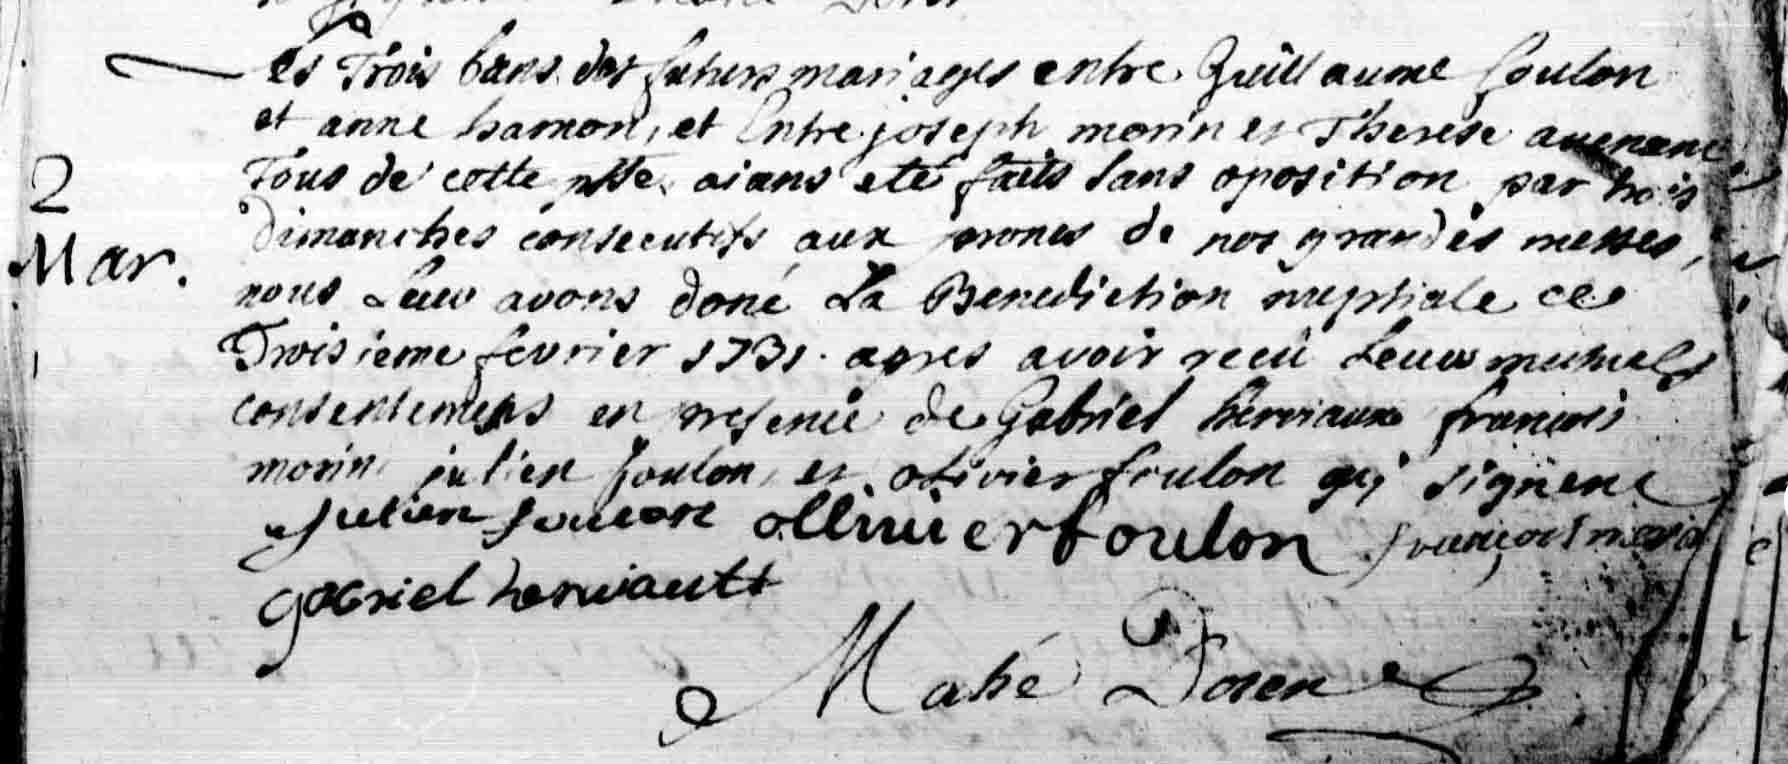 Les Trois bans des futurs mariages entre Guillaume foulon
et anne hamon, et Entre joseph morin et Therese
2
Tous de cette psse. aians eté faits sans oposition par trois
Dimanches consecutifs aux prones de nos grandes messes,
Mar.
nous Leur avons doné La Benediction nuptiale ce
Troisieme fevrier 1731. apres avoir recû Leurs mutuels
consentemens en presence de Gabriel herviaux françois
morin julien foulon, et olivier foulon qui signent
julien foulon ollivier foulon françois morin
gabriel herviault
Mahé Doien